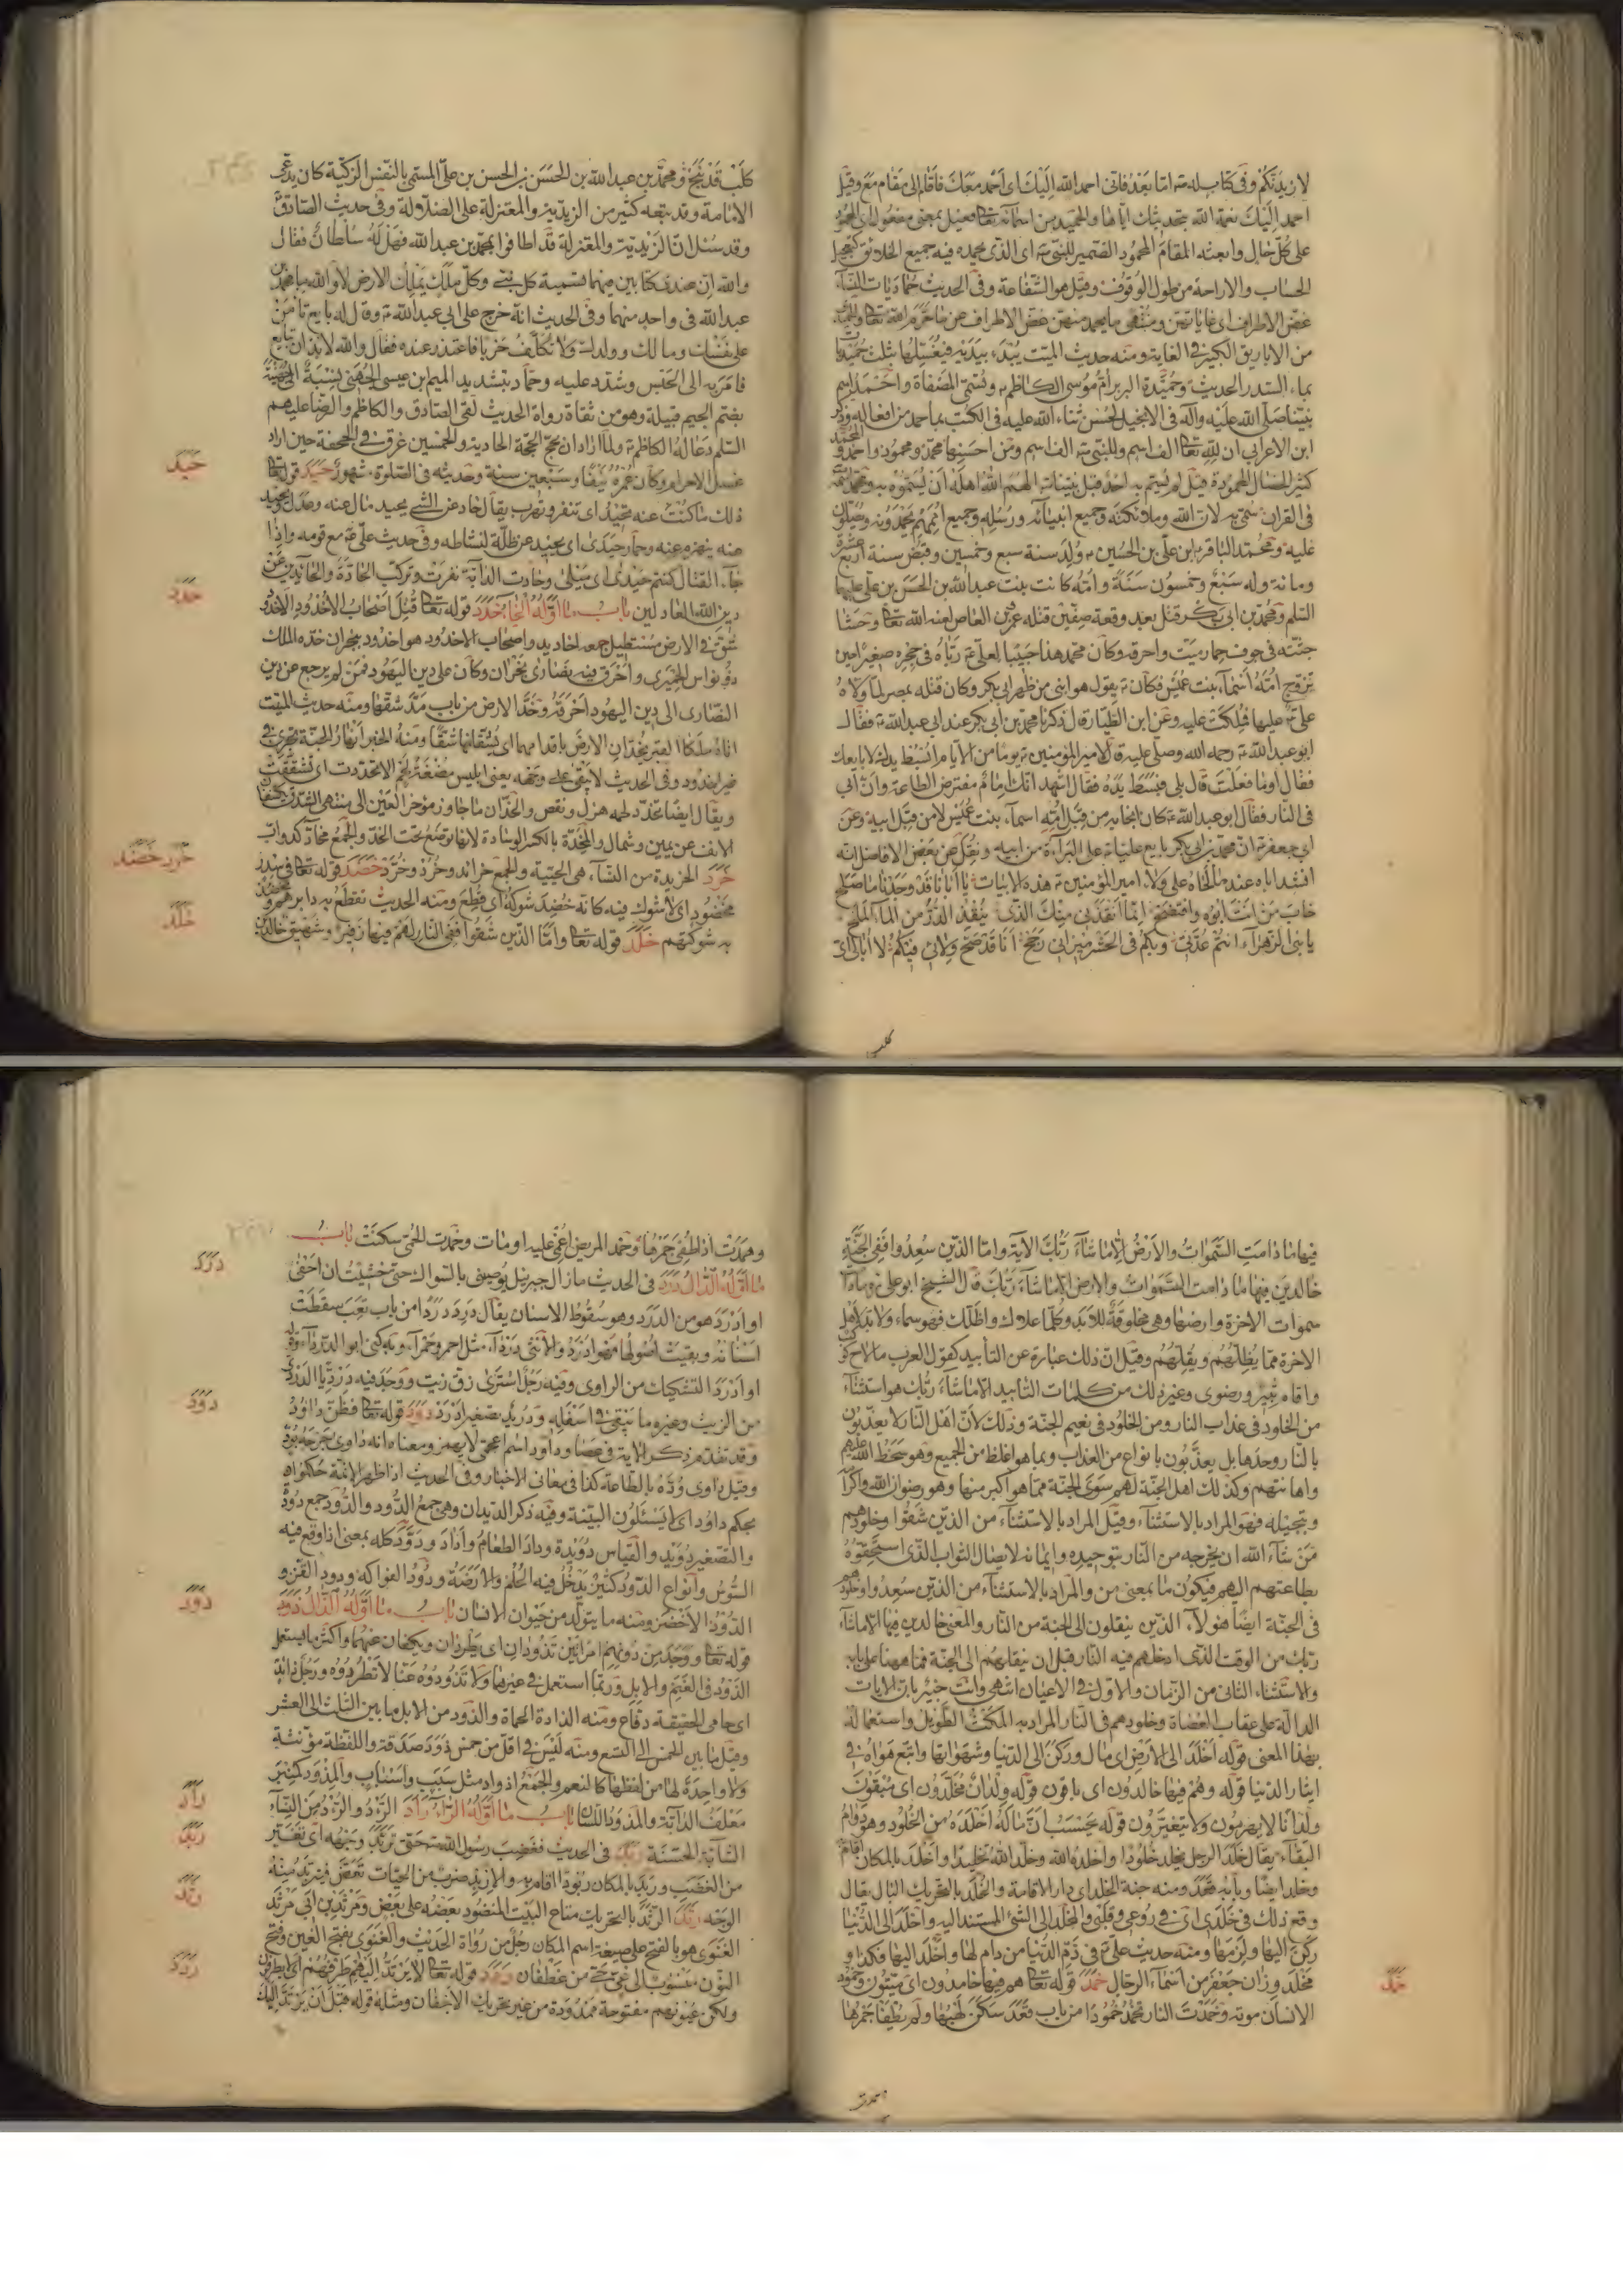 لازيدنكم وفي كتابه له ع اما بعد فاني احمد الله اليك اى احمد معك فاقام الى مقام مع وقيل
احمد اليك نعمة الله بتحديثك اياها والحميد من اسمائه تعالى فعيل بمعنى مفعول اى المحمود
على كل حال وابعثه المقام المحمود الضمير للنبي ص اى الذى يحمده فيه جميع الخلائق كتعجيل
الحساب والاراحة من طول الوقوف وقيل هو الشفاعة وفي الحديث حماديات النساء
غض الاطراف اى غاياتهن ومنتهى ما يحمد منهن غض الاطراف عن ما حرم الله تعالى
من الاباريق الكبير في الغاية ومنه حديث الميت يبدء بيديه فيغسلها بثلث حميديات
بماء السدر الحديث وحميدة البربر ام موسى الكاظم ع وتسمى المصفاة واحمد اسم
نبينا صلى الله عليه وآله في الانجيل لحسن ثناء الله عليه في الكتب بما حمد من افعاله وذكر
ابن الاعرابي ان لله تعالى الف اسم وللنبي ص الف اسم ومن احسنها محمد ومحمود واحمد
كثير الخصال المحمودة قيل لم يسم به احد قبل نبينا ص الهم الله اهله ان يسموه به
في القران سمى به لان الله وملائكته وجميع انبيائه ورسله وجميع اممهم يحمدونه ويصلون
عليه ومحمد الباقر ع ابن علي بن الحسين ع ولد سنة سبع وخمسين وقبض سنة اربع عشرة
ومائة وله سبع وخمسون سنة وامه كانت بنت عبدالله بن الحسن بن علي عليهما
السلم ومحمد بن ابي بكر قتل بعد وقعة صفين قتله عمرو بن العاص لعنه الله تعالى وحشا
جثته في جوف حمار ميت واحرقه وكان محمد هذا حبيبا لعلي ع رباه في حجره صغيرا حين
تزوج امه اسماء بنت عميس فكان ع يقول هو ابني من ظهر ابي بكر وكان قتله بمصر لما ولاه
علي ع عليها فملكت عليه وعن ابن الطيار قال ذكرنا محمد بن ابي بكر عند ابي عبدالله ع فقال
ابو عبدالله ع رحمه الله وصلى عليه قال لامير المؤمنين ع يوما من الايام ابسط يدك لابايعك
فقال او ما فعلت قال بلى فبسط يده فقال اشهد انك امام مفترض الطاعة وان ابي
في النار فقال ابو عبدالله ع كان انجابه من قبل امه اسماء بنت عميس لا من قبل ابيه وعن
ابي جعفر ع ان محمد بن ابي بكر بايع عليا ع على البرآءة من ابيه ونقل عن بعض الافاضل انه
انشد اباه عند ما لحاه على ولاء امير المؤمنين ع هذه الابيات يا ابانا قد وجدنا ما صلح
خاب من انت ابوه وافتضح انما انقذني منك الذى ينقذ الدر من الماء الملح
يا بني الزهراء انتم عدتي وبكم في الحشر ميزاني رجح انا قد صح ولائي فيكم لا ابالي اى
كلب
كلب قد نبح ومحمد بن عبدالله بن الحسن بن الحسن بن علي المسمى بالنفس الزكية كان يدعي
الامامة وقد تبعه كثير من الزيدية والمعتزلة على الضلالة وفي حديث الصادق
وقد سئل ان الزيدية والمعتزلة قد اطافوا بمحمد بن عبدالله فهل له سلطان فقال
والله ان عندى كتابين فيهما تسمية كل نبي وكل ملك يملك الارض لا والله ما محمد بن
عبدالله في واحد منهما وفي الحديث انه خرج على ابي عبدالله ع وقال له بايع تامن
على نفسك ومالك وولدك ولا تكلف حربا فاعتذر عنده فقال والله لا بد ان تبايع
فامر به الى الحبس وشدد عليه وحماد بتشديد الميم بن عيسى الجهني نسبة الى جهينة
بضم الجيم قبيلة وهو من ثقاة رواة الحديث لقى الصادق والكاظم والرضا عليهم
السلم دعا له الكاظم ع ولما اراد ان يحج الحجة الحادية والخمسين غرق في الجحفة حين اراد
غسل الاحرام وكان عمره نيفا وسبعين سنة وحديثه في الصلوة مشهور حيد قوله تعالى
ذلك ما كنت عنه تحيد اى تنفر وتهرب يقال حاد عن الشئ يحيد مال عنه وعدل
عنه ينهزه عنه وحمار حيدى اى يحيد عن ظله لنشاطه وفي حديث علي ع مع قومه واذا
جاء القتال كنتم حيدى اى ميلى وحادت الدابة نفرت وتركت الجادة والحائدين عن
دين الله العادلين باب ما اوله الخاء خدد قوله تعالى قتل اصحاب الاخدود الاخدود
شق في الارض مستطيل جمعه اخاديد واصحاب الاخدود هو اخدود بنجران خده الملك
ذو نواس الحميرى واحرق فيه نصارى نجران وكان على دين اليهود فمن لم يرجع عن دين
النصارى الى دين اليهود احرقه وخد الارض من باب مد شقها ومنه حديث الميت
اتاه ملكا القبر يخدان الارض باقدامهما اى يشقانها شقا ومنه الخبر انهار الجنة تجرى في
غير اخدود وفي الحديث لا يبقى على وجهه يعنى ابليس مضغة لحم الا تخددت اى تشققت
ويقال ايضا تخدد لحمه هزل ونقص والخدان ما جاوز مؤخر العين الى منتهى الشدق
الانف عن يمين وشمال والمخدة بالكسر الوسادة لانها توضع تحت الخد والجمع مخاد كدواب
خرد الخريدة من النساء هي الحيية والجمع خرائد وخرد وخرد خضد قوله تعالى في سدر
مخضود اى لا شوك فيه كانه خضد شوكه اى قطع ومنه الحديث تقطع به دابرهم و
به شوكتهم خلد قوله تعالى واما الذين شقوا ففي النار لهم فيها زفير وشهيق خالدين
حيد
خدد
خرد خضد
خلد
فيها ما دامت السموات والارض الا ما شاء ربك الآية واما الذين سعدوا ففي الجنة
خالدين فيها ما دامت السموات والارض الا ما شاء ربك قال الشيخ ابو علي ره
سموات الاخرة وارضها وهي مخلوقة للابد وكلما علاك واظلك فهو سماء ولا بد لاهل
الاخرة مما يظلهم ويقلهم وقيل ان ذلك عبارة عن التأبيد كقول العرب ما لاح كوكب
واقام ثبير ورضوى وغير ذلك من كلمات التأبيد الا ما شاء ربك هو استثناء
من الخلود في عذاب النار ومن الخلود في نعيم الجنة وذلك لان اهل النار لا يعذبون
بالنار وحدها بل يعذبون بانواع من العذاب وبما هو اغلظ من الجميع وهو سخط الله عليهم
واهانتهم وكذلك اهل الجنة لهم سوى الجنة مما هو اكبر منها وهو رضوان الله واكرامه
وتبجيله فهو المراد بالاستثناء وقيل المراد بالاستثناء من الذين شقوا وخلودهم
من شاء الله ان يخرجه من النار بتوحيده وايمانه لايصال الثواب الذى استحقوه
بطاعتهم اليهم فيكون ما بمعنى من والمراد بالاستثناء من الذين سعدوا وخلودهم
في الجنة ايضا هؤلاء الذين ينقلون الى الجنة من النار والمعنى خالدين فيها الا ما شاء
ربك من الوقت الذى ادخلهم فيه النار قبل ان ينقلهم الى الجنة فما ههنا على بابه
والاستثناء الثاني من الزمان والاول في الاعيان انتهى وانت خبير بان الايات
الدالة على عقاب العصاة وخلودهم في النار المراد به المكث الطويل واستعماله
بهذا المعنى قوله اخلد الى الارض اى مال وركن الى الدنيا وشهواتها واتبع هواه في
ايثار الدنيا قوله وهم فيها خالدون اى باقون قوله ولدان مخلدون اى مبقون
ولدانا لا يهرمون ولا يتغيرون قوله يحسب ان ماله اخلده من الخلود وهو دوام
البقاء يقال خلد الرجل يخلد خلودا واخلده الله وخلده الله تخليدا واخلد بالمكان اقام
وخلد ايضا وبابه قعد ومنه جنة الخلد اى دار الاقامة والخلد بالتحريك البال يقال
وقع ذلك في خلدى اى في روعى وقلبى والمخلد الى الشئ المستند اليه واخلد الى الدنيا
ركن اليها ولزمها ومنه حديث علي ع في ذم الدنيا من دام لها واخلد اليها فكذا و
مخلد وزان جعفر من اسماء الرجال خمد قوله تعالى هم فيها خامدون اى ميتون وخمود
الانسان موته وخمدت النار تخمد خمودا من باب قعد سكن لهبها ولم يطفا جمرها
خمد
وهمدت
وهمدت اذا طفئ جمرها وخمد المريض اغمي عليه او مات وخمدت الحمى سكنت باب
ما اوله الدال درد في الحديث ما زال جبرئيل يوصيني بالسواك حتى خشيت ان احفى
او ادرد هو من الدرد وهو سقوط الاسنان يقال درد دردا من باب تعب سقطت
اسنانه وبقيت اصولها فهو ادرد والانثى درداء مثل احمر وحمراء وبه كنى ابو الدرداء
او ادرد التشكيك من الراوى وفيه رجل اشترى زق زيت ووجد فيه درديا الدردى
من الزيت وغيره ما يبقى في اسفله ودريد تصغير ادرد دود قوله تعالى فظن داود
وقد تقدم ذكر الاية في عصا وداود اسم اعجمى لا يهمز ومعناه انه داوى جرحه بود
وقيل داوى وده بالطاعة كذا في معاني الاخبار وفي الحديث اذا ظهر الائمة حكموا
بحكم داود اى لا يسئلون البينة وفيه ذكر الديدان وهي جمع الدود والدود جمع دودة
والتصغير دويد والقياس دويدة وداد الطعام واداد ودود كله بمعنى اذا وقع فيه
السوس وانواع الدود كثير يدخل فيه الحلم والارضة ودود الفواكه ودود القز و
الدود الاخضر ومنه ما يتولد من حيوان الانسان باب ما اوله الذال ذود
قوله تعالى ووجد من دونهم امرأتين تذودان اى يطردان ويكفان عنهما واكثر ما يستعمل
الذود في الغنم والابل وربما استعمل في غيرها ولا تذودوه عنا لا تطردوه ورجل ذائد
اى حامى الحقيقة دفاع ومنه الذادة الحماة والذود من الابل ما بين الثلث الى العشر
وقيل ما بين الخمس الى التسع ومنه ليس في اقل من خمس ذود صدقة واللفظة مؤنثة
ولا واحدة لها من لفظها كالنعم والجمع اذواد مثل سبب واسباب والمذود كمنبر
معلف الدابة والمذود اللسان باب ما اوله الراء رأد الرأد والرؤد من النساء
الشابة الحسنة ربد في الحديث فغضب رسول الله ص حتى تربد وجهه اى تغير
من الغضب وربد بالمكان ربودا اقام به والاربد ضرب من الحيات تعض فيتربد منه
الوجه رثد الرثد بالتحريك متاع البيت المنضود بعضه على بعض ومرثد بن ابي مرثد
الغنوى هو بالفتح على صيغة اسم المكان رجل من رواة الحديث والغنوى بفتح الغين وفتح
النون منسوب الى غنى حي من غطفان ردد قوله تعالى لا يرتد اليهم طرفهم اى لا يطرفون
ولكن عيونهم مفتوحة ممدودة من غير تحريك الاجفان ومثله قوله قبل ان يرتد اليك
درد
دود
ذود
رأد
ربد
رثد
ردد